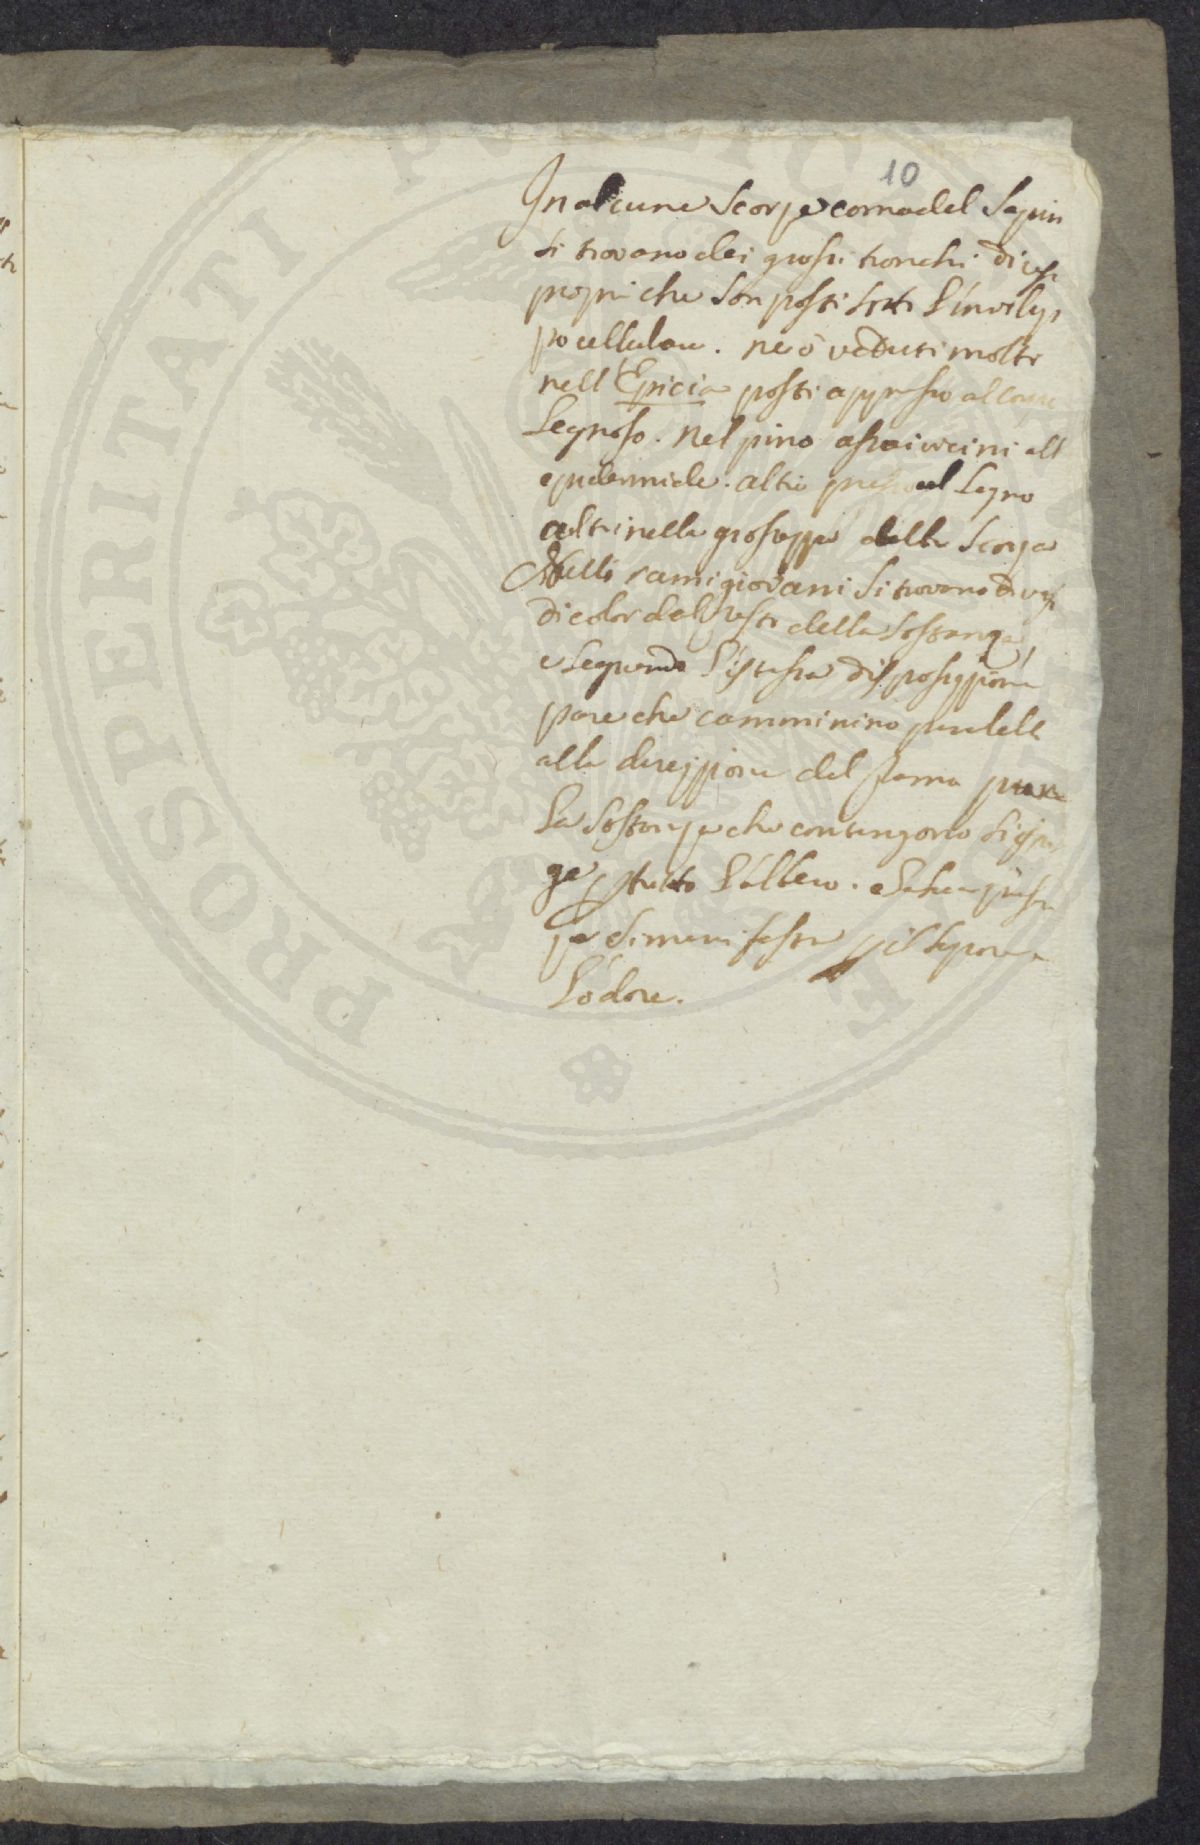 10
In alcune Scorze come del Sapin
si trovano dei grossi tronchi di vasi
proprii che son posti sotto l'invilup
po cellulare. ne ò veduti molti
nell'Epicia posti appresso al corpo
Legnoso. nel pino assai vicini all
epidermide. altri presso al Legno
altri nella grossezza della Scorza
Nelli rami giovani si trovano di vasi
di color della sostanza,
e seguendo l'istessa disposizione
pare che camminino paralelli
alla direzzione del Ramo
La sostanza che contengono si span
ge p tutto l'albero. e la sua
za si manifesta p il sapore e
L'odore.
PROSPERITATI PUBLICAE